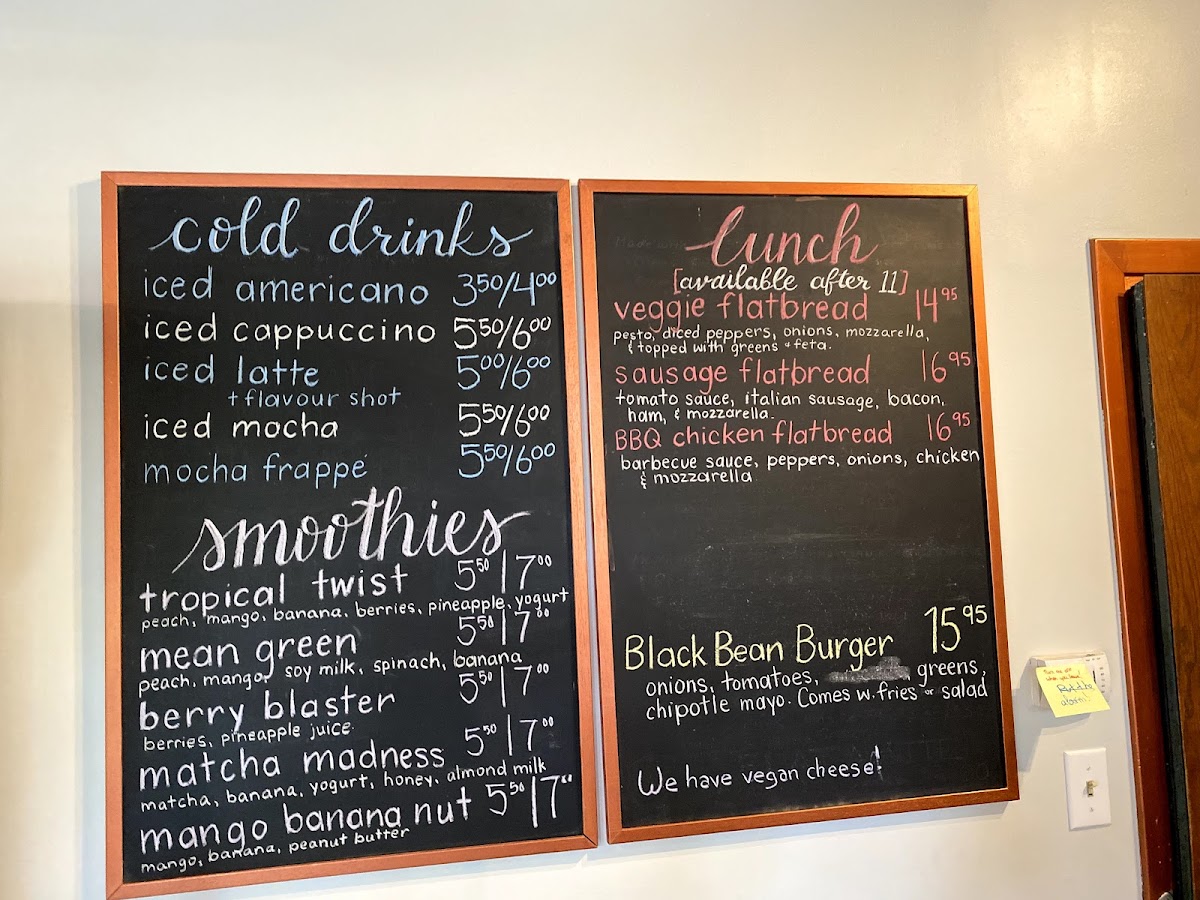 cold drinks
iced americano 3.50/4.00
iced cappuccino 5.50/6.00
iced latte 5.00/6.00
+ flavour shot
iced mocha 5.50/6.00
mocha frappé 5.50/6.00
smoothies
tropical twist 5.50|7.00
peach, mango, banana, berries, pineapple, yogurt
mean green 5.50|7.00
peach, mango, soy milk, spinach, banana
berry blaster 5.50|7.00
berries, pineapple juice.
matcha madness 5.50|7.00
matcha, banana, yogurt, honey, almond milk
mango banana nut 5.50|7.00
mango, banana, peanut butter
lunch
[available after 11]
veggie flatbread 14.95
pesto, diced peppers, onions, mozzarella,
& topped with greens & feta.
sausage flatbread 16.95
tomato sauce, italian sausage, bacon,
ham, & mozzarella.
BBQ chicken flatbread 16.95
barbecue sauce, peppers, onions, chicken
& mozzarella
Black Bean Burger 15.95
onions, tomatoes, greens,
chipotle mayo. Comes w. fries or salad
We have vegan cheese!